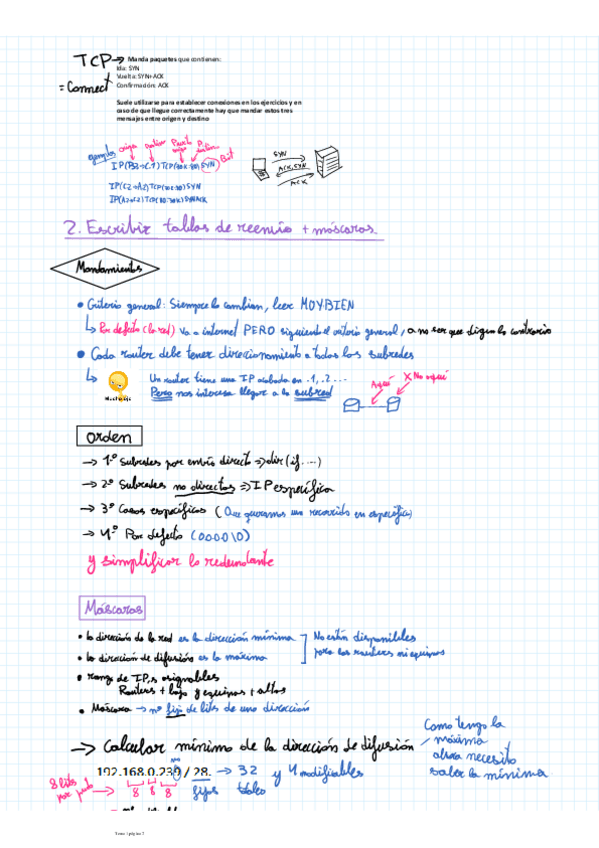 TCP → Manda paquetes que contienen:
Ida: SYN
Vuelta: SYN+ACK
= Connect Confirmación: ACK
Suele utilizarse para establecer conexiones en los ejercicios y en
caso de que llegue correctamente hay que mandar estos tres
mensajes entre origen y destino
ejemplos origen destino Puerto origen P. destino
SYN Bit
SYN
ACK,SYN
ACK
2. Escribir tablas de reenvío + máscaras
Mandamientos
• Criterio general: Siempre lo cambian, leer MUY BIEN
↳ Por defecto (la red) va a internet PERO siguiendo el criterio general, a no ser que diga lo contrario
• Cada router debe tener direccionamiento a todas las subredes
↳ Un router tiene una IP acabada en .1, .2 ...
Pero nos interesa llegar a la subred
Aquí X No aquí
Orden
→ 1º Subredes por envío directo ⇒ dir (if ....)
→ 2º Subredes no directas ⇒ IP específica
→ 3º Casos específicos (Que queramos un recorrido en específico)
→ 4º Por defecto (0.0.0.0\0)
y simplificar lo redundante
Máscaras
• la dirección de la red es la dirección mínima
• la dirección de difusión es la máxima
No están disponibles
para los routers ni equipos
• rango de IP,s asignables
Routers + bajo y equipos + altos
• Máscara → nº fijo de bits de una dirección
→ Calcular mínimo de la dirección de difusión
Como tengo la
máxima
ahora necesito
saber la mínima
192.168.0.239 / 28. → 32 y 4 modificables
8 bits por punto → 8 8 8 fijos totales
Tema 1 página 2